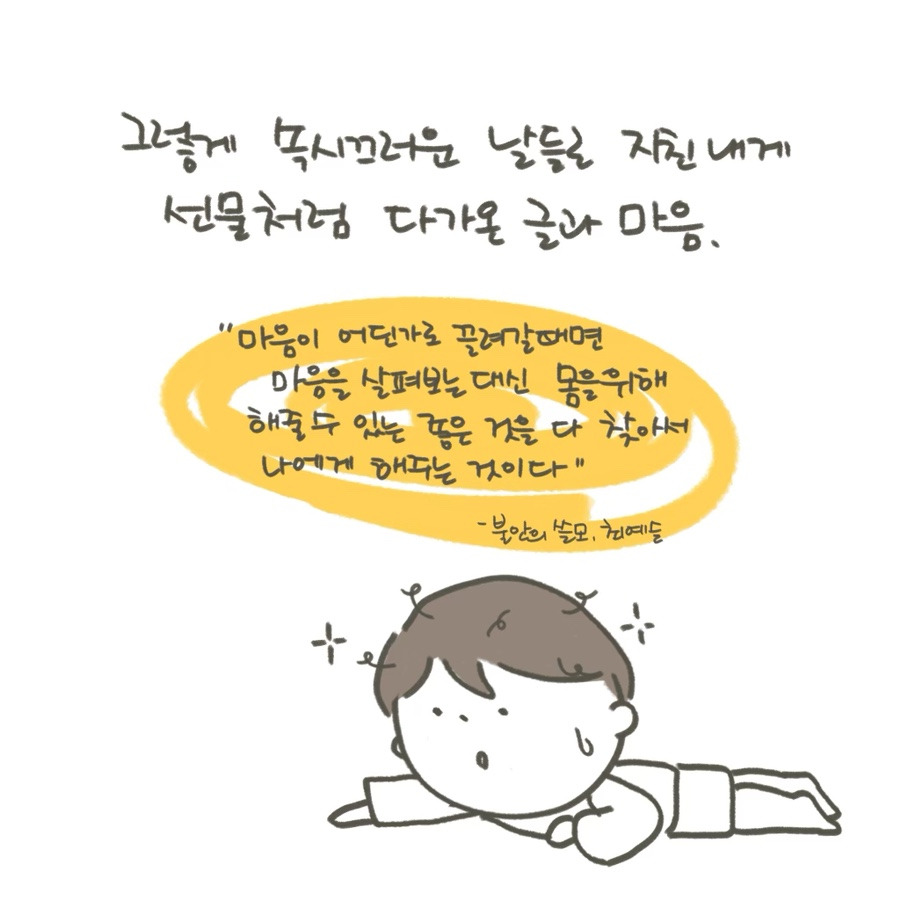 그렇게 속시끄러운 날들로 지친 내게
선물처럼 다가온 글과 마음.
"마음이 어딘가로 끌려갈때면
마음을 살펴보는 대신 몸을 위해
해줄 수 있는 좋은 것을 다 찾아서
나에게 해주는 것이다"
-불안의 쓸모, 최예슬